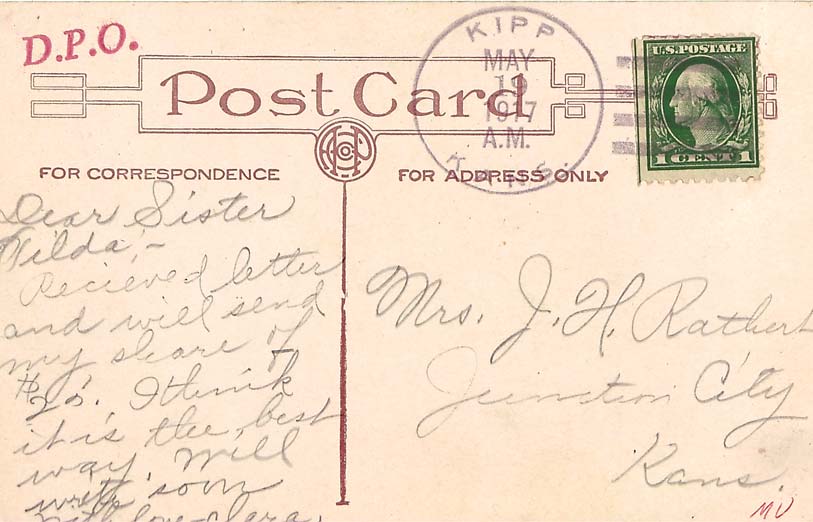 D.P.O.
Post Card
KIPP
MAY
19
1917
A.M.
KANS.
U.S. POSTAGE
1 CENT 1
FOR CORRESPONDENCE
FOR ADDRESS ONLY
Dear Sister
Wilda,-
Recieved letter
and will send
my share of
$25. I think
it is the best
way. Will
write soon
With love Clara.
Mrs. J. H. Rathert
Junction City
Kans.
MU